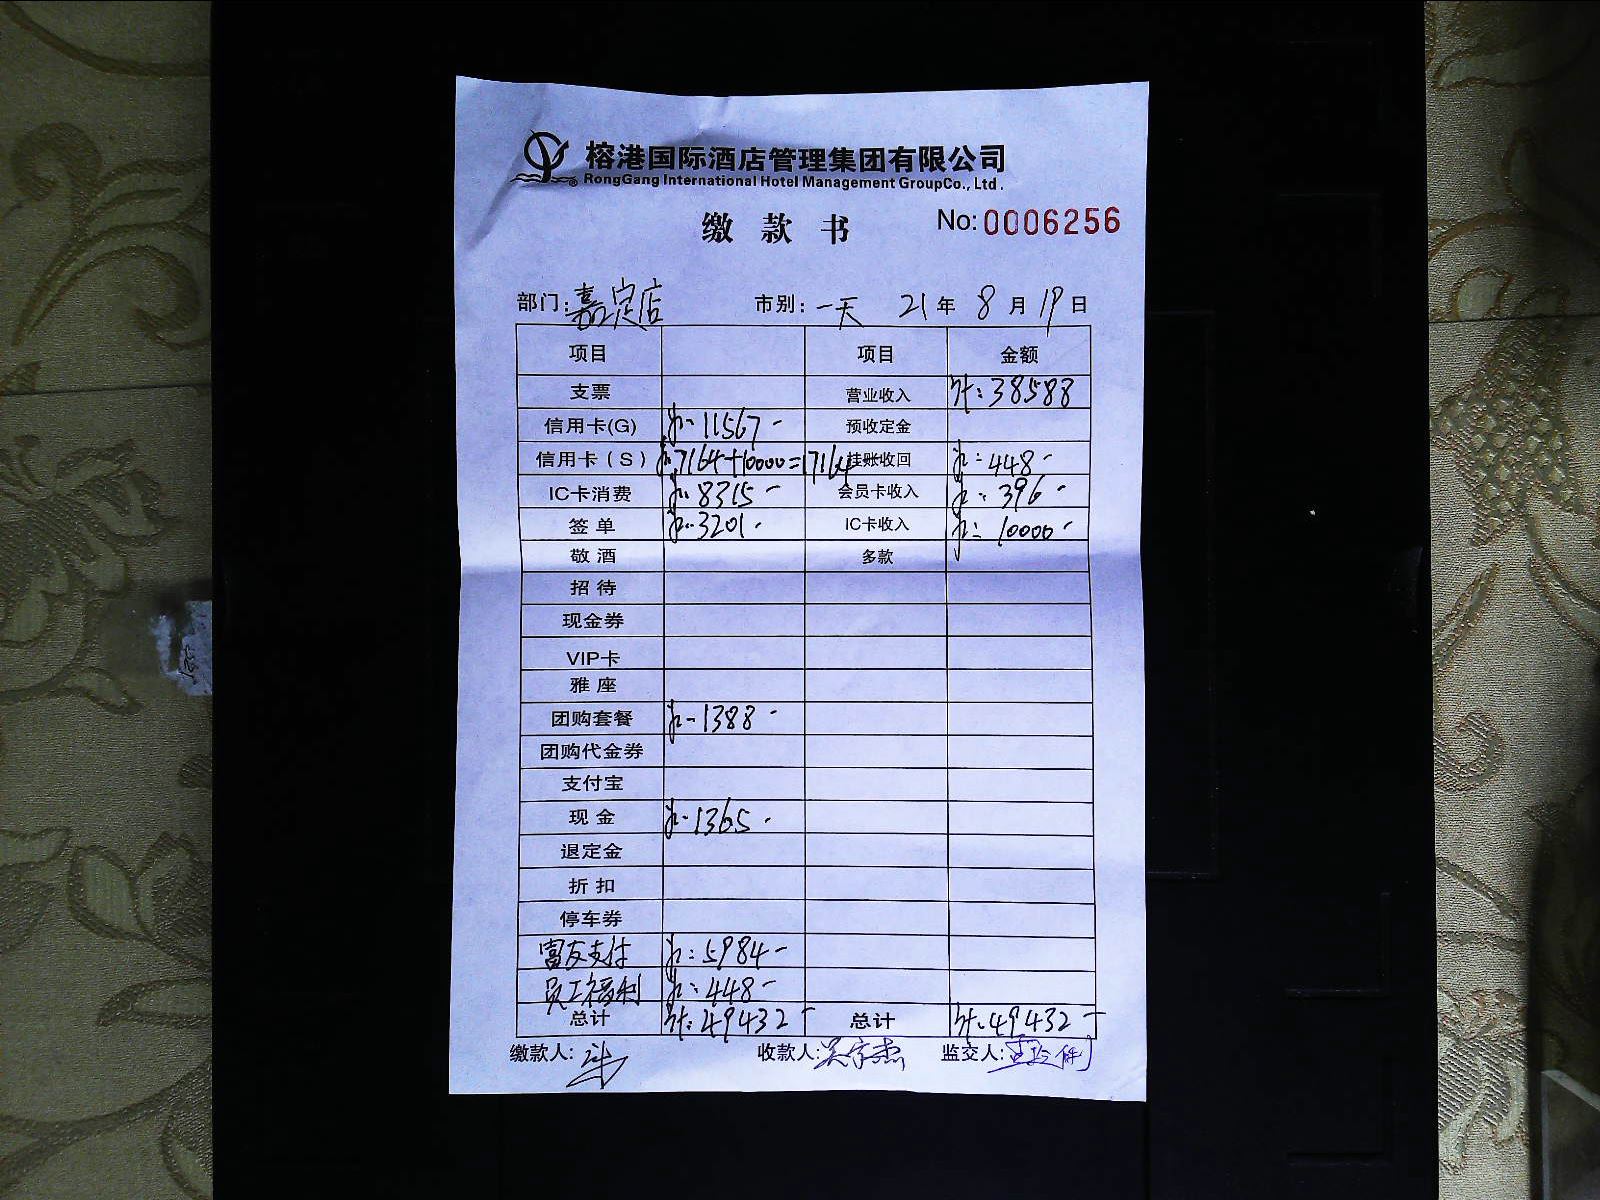 榕港国际酒店管理集团有限公司
RongGang International Hotel Management GroupCo., Ltd.
缴 款 书 No: 0006256
部门: 嘉定店 市别: 一天 21 年 8 月 19 日
项目 项目 金额
支票 营业收入 计: 38588
信用卡(G) 11567 - 预收定金
信用卡(S) 7164+10000=17164 挂账收回 448 -
IC卡消费 8315 - 会员卡收入 396 -
签 单 3201 - IC卡收入 10000 -
敬 酒 多款
招 待
现金券
VIP卡
雅 座
团购套餐 1388 -
团购代金券
支付宝
现 金 1365 -
退定金
折 扣
停车券
富友支付 5984 -
员工福利 448 -
总计 计: 49432 - 总计 计: 49432 -
缴款人: 收款人: 监交人: